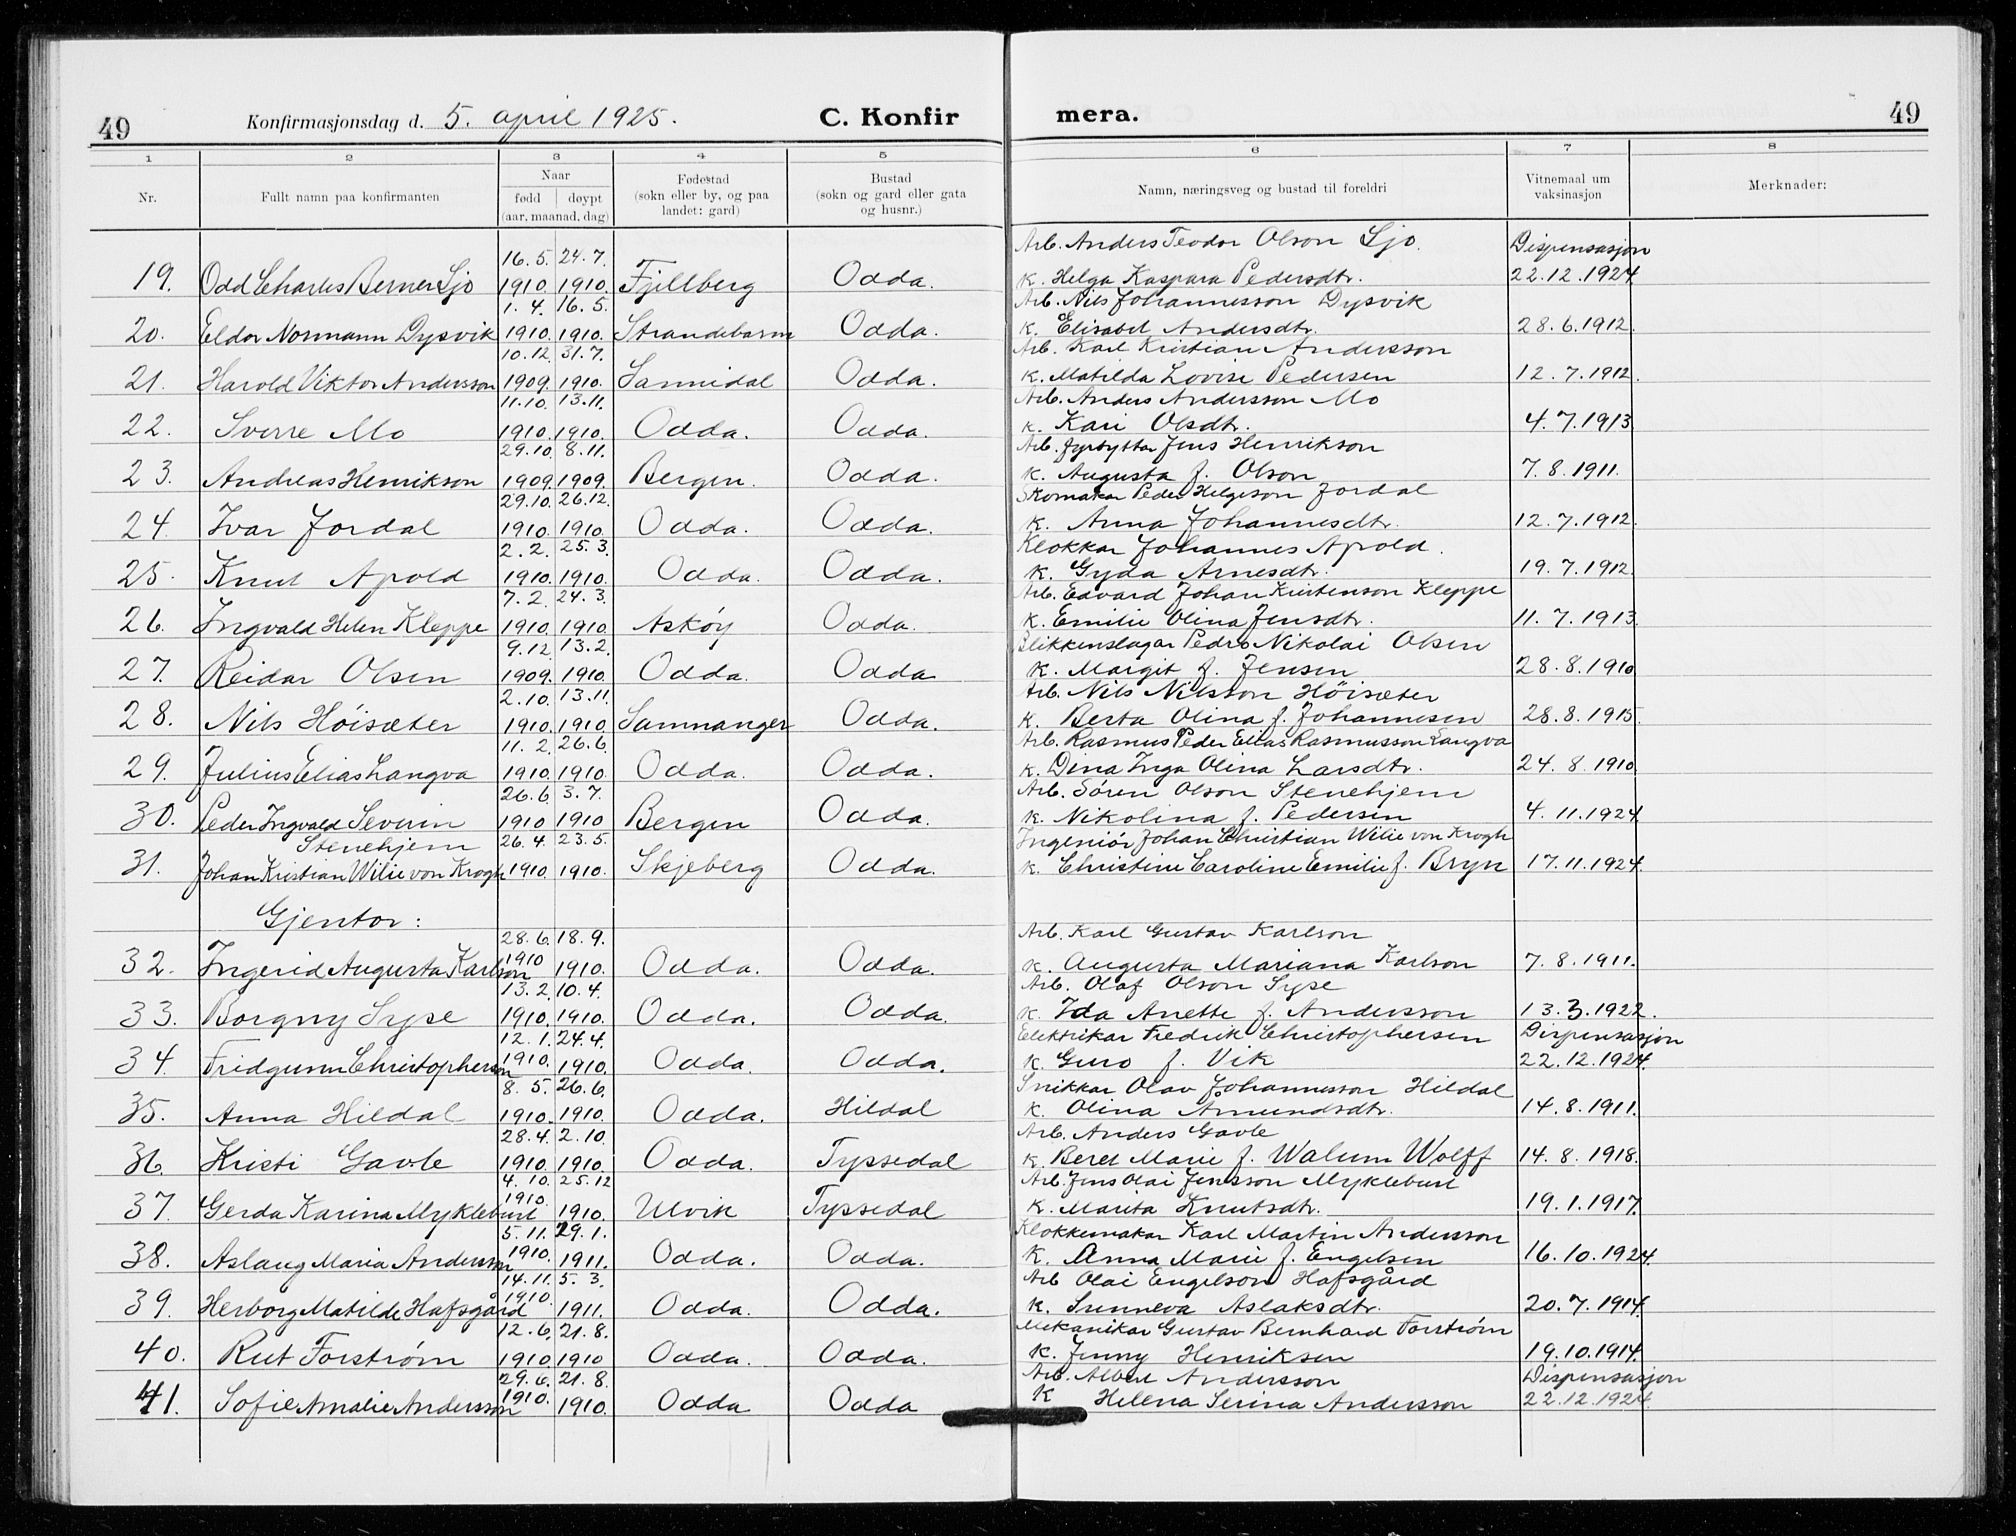 49 Konfirmasjonsdag d. 5. april 1925. C. Konfir mera. 49
1 2 3 4 5 6 7 8
Nr. Fullt namn paa konfirmanten Naar født | døypt (aar, maanad, dag) Fødestad (sokn eller by, og paa landet: gard) Bustad (sokn og gard eller gata og husnr.) Namn, næringsveg og bustad til foreldri Vitnemaal um vaksinasjon Merknader:
16.5. 24.7. Arb. Anders Teodor Olson Sjo. Dispensasjon
19. Odd Charles Berner Sjo 1910. 1910. Fjellberg Odda. K. Helga Kaspara Pedersdtr. 22.12.1924
1.4. 16.5. Arb. Nils Johannesson Dysvik
20. Eldor Normann Dysvik 1910. 1910. Strandebarm Odda. K. Elisabet Andersdtr. 28.6.1912.
10.12. 31.7. Arb. Karl Kristian Andersson
21. Harold Viktor Andersson 1909. 1910. Sannidal Odda. K. Matilda Lovise Pedersen 12.7.1912.
11.10. 13.11. Arb. Anders Andersson Mo
22. Sverre Mo 1910. 1910. Odda. Odda. K. Kari Olsdtr. 4.7.1913
29.10. 8.11. Arb. Jens Henrikson
23. Andreas Henrikson 1909. 1909. Bergen. Odda. K. Augusta f. Olson 7.8.1911.
29.10. 26.12. Skomakar Peder Helgeson Jordal
24. Ivar Jordal 1910. 1910. Odda. Odda. K. Anna Johannesdtr. 12.7.1912.
2.2. 25.3. Klokkar Johannes Apold.
25. Knut Apold 1910. 1910. Odda. Odda. K. Gyda Arnesdtr. 19.7.1912.
7.2. 24.3. Arb. Edvard Johan Kristenson Kleppe
26. Ingvald Helen Kleppe 1910. 1910. Askøy Odda. K. Emilie Olina Jensdtr. 11.7.1913.
9.12. 13.2. Blikkenslagar Pedro Nikolai Olsen
27. Reidar Olsen 1909. 1910. Odda. Odda K. Margit f. Jensen 28.8.1910
2.10. 13.11. Arb. Nils Nilsson Höisæter
28. Nils Höisæter 1910. 1910. Samnanger Odda. K. Berta Olina f. Johannesen 28.8.1915.
11.2. 26.6. Arb. Rasmus Peder Elias Rasmusson Langva
29. Julius Elias Langva 1910. 1910. Odda. Odda. K. Dina Inga Olina Larsdtr. 24.8.1910
26.6. 3.7. Arb. Sören Olson Stenehjem
30. Peder Ingvald Severin 1910 1910 Bergen Odda. K. Nikolina f. Pedersen 4.11.1924.
Stenehjem 26.4. 23.5. Ingeniør Johan Christian Wilie von Krogh
31. Johan Kristian Wilie von Krogh 1910 1910. Skjeberg Odda. K. Christine Caroline Emilie f. Bryn 17.11.1924.
Gjentor:
28.6. 18.9. Arb. Karl Gustav Karlson
32. Ingerid Augusta Karlson 1910 1910. Odda. Odda. K. Augusta Mariana Karlson 7.8.1911.
13.2. 10.4. Arb. Olaf Olson Syse
33. Borgny Syse 1910. 1910. Odda. Odda. K. Ida Anette f. Andersson 13.3.1922.
12.1. 24.4. Elektrikar Fredrik Christophersen Dispensasjon
34. Fridgunn Christophersen 1910. 1910. Odda. Odda. K. Guro f. Vik 22.12.1924.
8.5. 26.6. Snikkar Olav Johannesson Hildal
35. Anna Hildal 1910. 1910. Odda. Hildal K. Olina Amundsdtr. 14.8.1911.
28.4. 2.10. Arb. Anders Gavle
36. Kristi Gavle 1910. 1910. Odda. Tyssedal K. Beret Marie f. Walum Wolff 14.8.1918.
4.10. 25.12 Arb. Jens Olai Jensson Myklebust
37. Gerda Karina Myklebust 1910. 1910. Ulvik Tyssedal K. Marita Knutsdtr. 19.1.1917.
5.11. 29.1. Klokkemakar Karl Martin Andersson
38. Aslaug Maria Andersson 1910. 1911. Odda. Odda. K. Anna Marie f. Engelsen 16.10.1924.
14.11. 5.3. Arb Olai Engelson Hafsgård
39. Herborg Matilde Hafsgård 1910. 1911. Odda. Odda. K. Sunneva Aslaksdtr. 20.7.1914.
12.6. 21.8. Mekanikar Gustav Bernhard Forstrøm
40. Rut Forstrøm 1910. 1910 Odda. Odda. K. Jenny Henriksen 19.10.1914.
29.6. 21.8. Arb. Albert Andersson Dispensasjon
41. Sofie Amalie Andersson 1910. 1910. Odda Odda K Helena Serina Andersson 22.12.1924